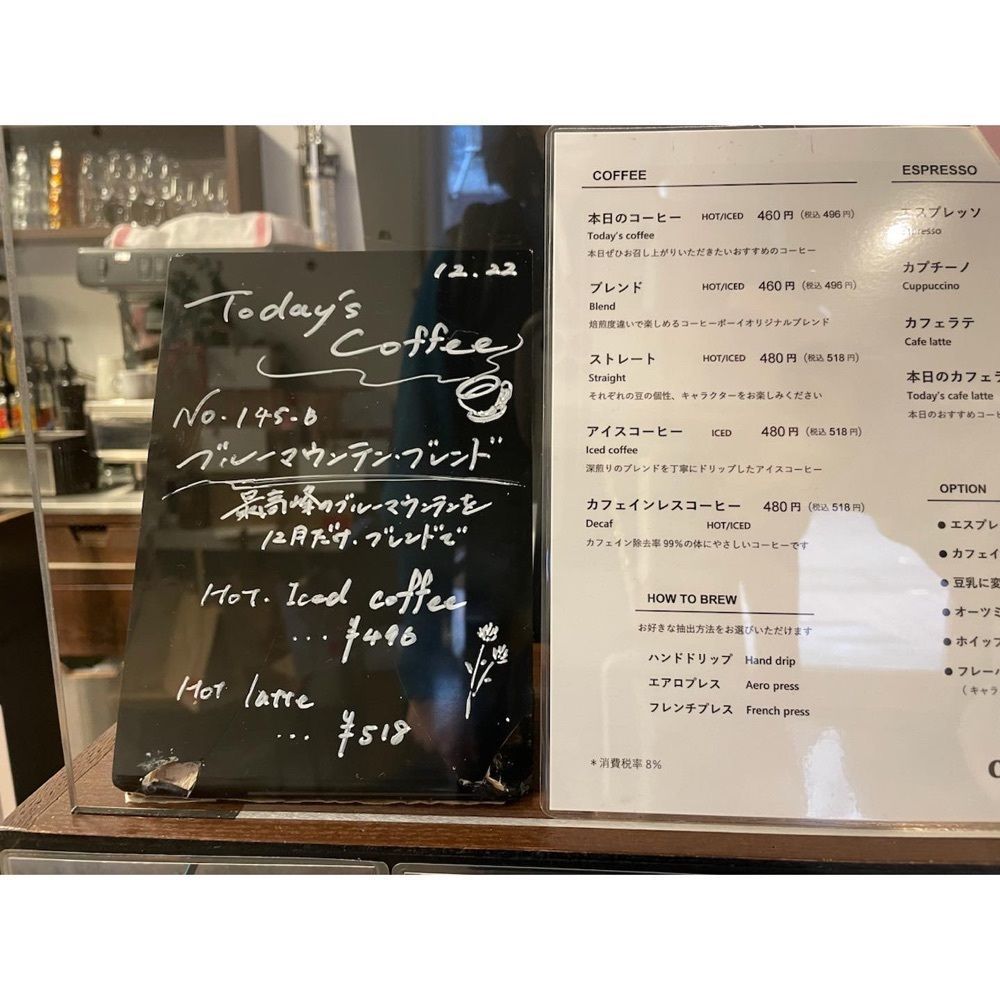 12.22
Today's
Coffee
No.145-B
ブルーマウンテン・ブレンド
最高峰のブルーマウンテンを
12月だけ・ブレンドで
Hot. Iced coffee
... ¥496
Hot latte
... ¥518
COFFEE
本日のコーヒー HOT/ICED 460円 (税込 496円)
Today's coffee
本日ぜひお召し上がりいただきたいおすすめのコーヒー
ブレンド HOT/ICED 460円 (税込 496円)
Blend
焙煎度違いで楽しめるコーヒーボーイオリジナルブレンド
ストレート HOT/ICED 480円 (税込 518円)
Straight
それぞれの豆の個性、キャラクターをお楽しみください
アイスコーヒー ICED 480円 (税込 518円)
Iced coffee
深煎りのブレンドを丁寧にドリップしたアイスコーヒー
カフェインレスコーヒー 480円 (税込 518円)
Decaf HOT/ICED
カフェイン除去率99%の体にやさしいコーヒーです
HOW TO BREW
お好きな抽出方法をお選びいただけます
ハンドドリップ Hand drip
エアロプレス Aero press
フレンチプレス French press
*消費税率8%
ESPRESSO
エスプレッソ
カプチーノ
Cuppuccino
カフェラテ
Cafe latte
本日のカフェラ
Today's cafe latte
本日のおすすめコー
OPTION
● エスプレ
● カフェイ
● 豆乳に変
● オーツミ
● ホイップ
● フレーバ
(キャラ